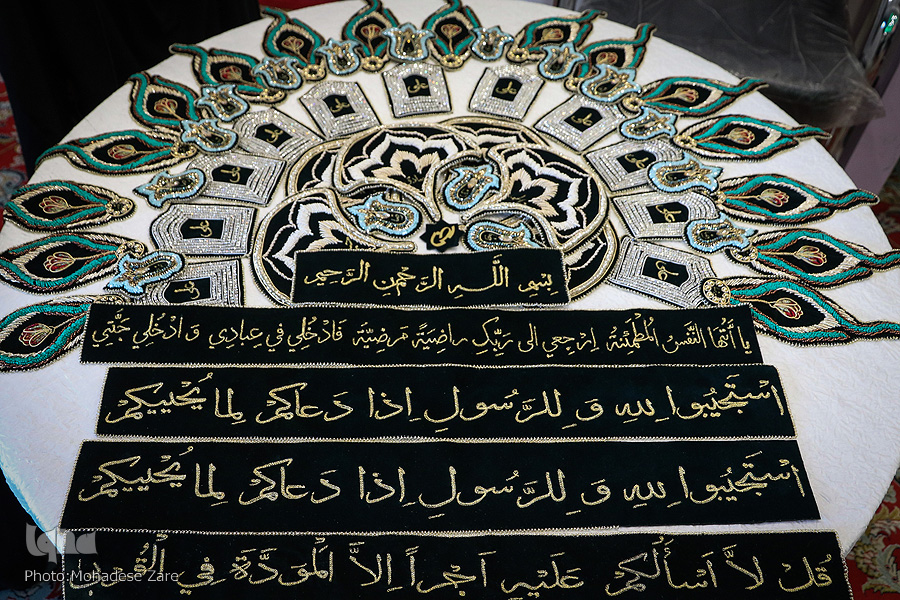 علی
علی
علی
علی
علی
علی
علی
بِسْمِ اللَّهِ الرَّحْمنِ الرَّحیمِ
یا أَیَّتُهَا النَّفْسُ الْمُطْمَئِنَّةُ اِرْجِعِي الی رَبِّكِ راضِیَةً مَرضِیَّة فَادْخُلِي فِي عِبادِي وَ ادْخُلِي جَنَّتِي
اسْتَجیبُوا لِلهِ وَ لِلرَّسُولِ اِذا دَعاکُمْ لِما یُحْیِیکُمْ
اسْتَجیبُوا لِلهِ وَ لِلرَّسُولِ اِذا دَعاکُمْ لِما یُحْیِیکُمْ
قُلْ لاَّ اَسْأَلُکُمْ عَلَیْهِ اَجْراً اِلاَّ الْمَوَدَّةَ فِي الْقُرْب
iqna
Photo:Mohadese Zare